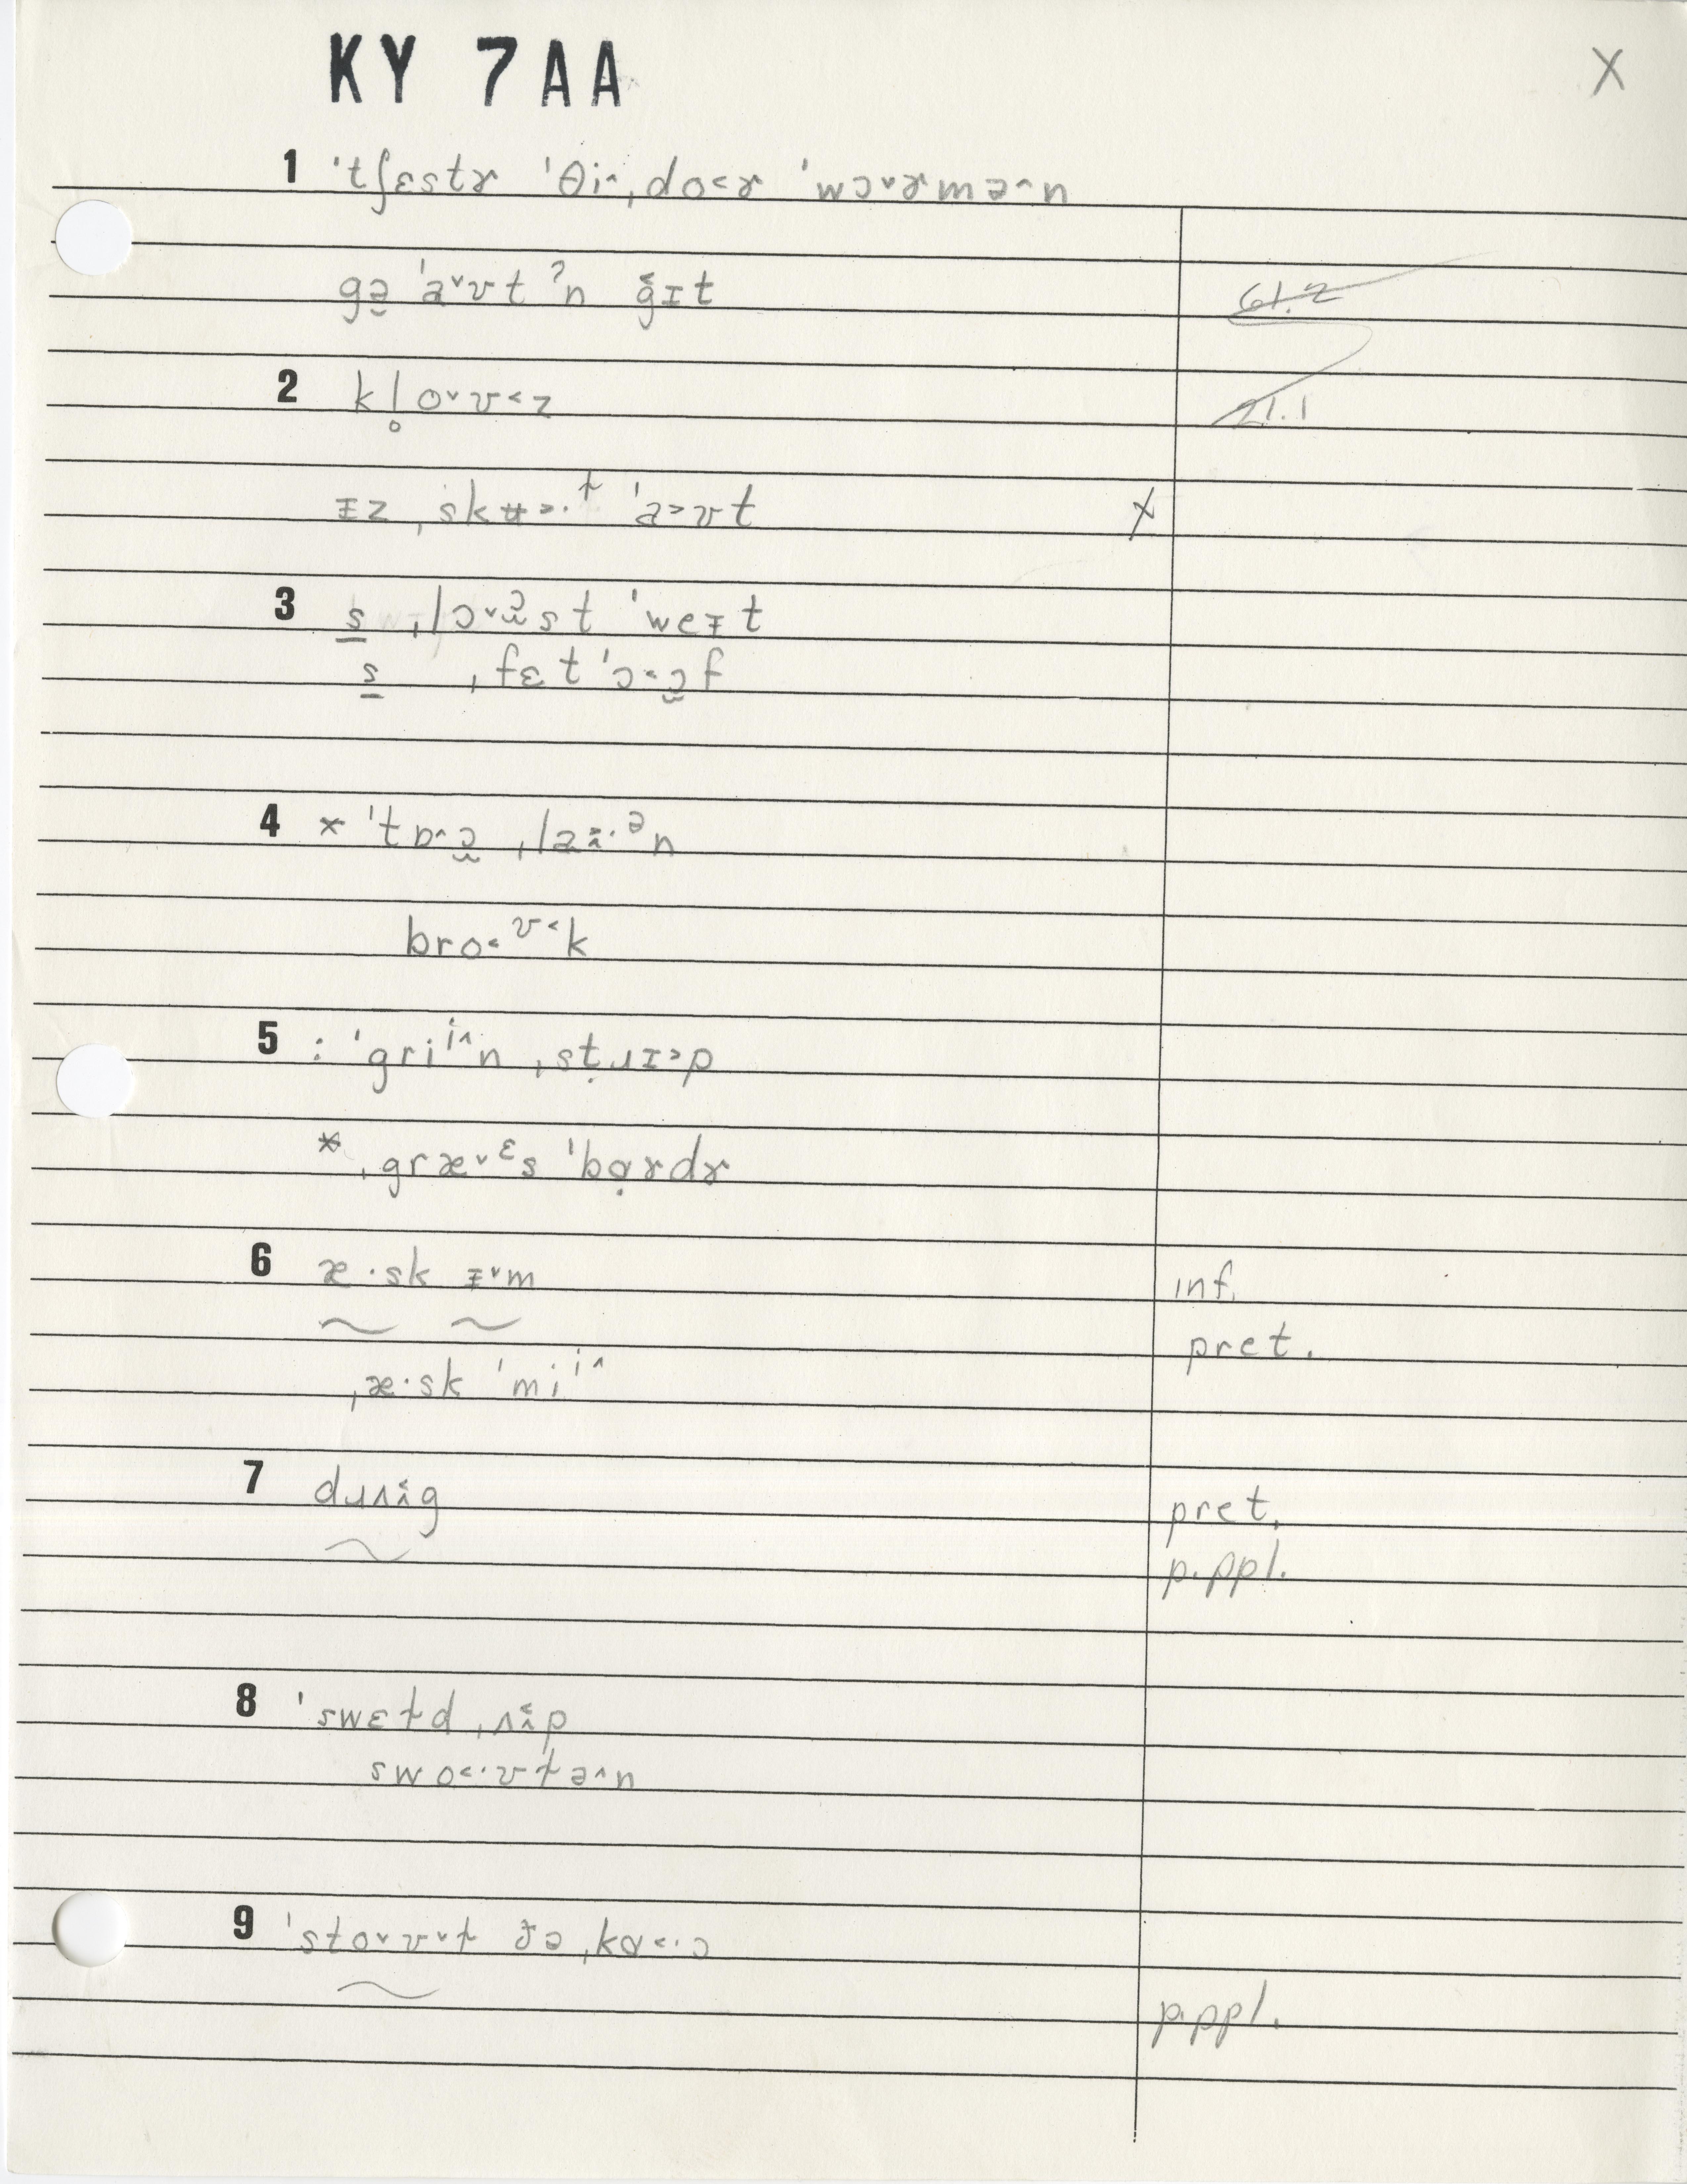 KY 7AA X
1 ˈtʃɛstɚ ˈθi˄ˌdo˂ɚ ˈwɔ˅ɚmə˄n
gə̯ ˈa˅ʊt ʔn g̑ɪt 61.2
2 kl̥o˅ʊ˂z 21.1
ᵻz ˌskʉ˃·ɫ ˈa˃ʊt X
3 s̲ ˌlɔ˅ɔ̯̂st ˈweᵻt
s̲ ˌfɛt ˈɔ˂ɔ̯f
4 * ˈtɒ˄ɔ̯ ˌlaɨ̯·ᵊn
bro˂ᶷ˂k
5 : ˈgriⁱ˄n ˌsṭɹɪ˃p
* ˌgræ˅ᵋs ˈbɑ̣ɚdɚ
6 æ·sk ᵻ˅m inf.
pret.
ˌæ·sk ˈmiⁱ˄
7 dɹʌɨ̯g pret.
p.ppl.
8 ˈswɛɫd ˌʌɨ̯p
swo˂·ʊɫə˄n
9 ˈsto˅ʊ˅ɫ ðə ˌkɑ˂·ɔ
p.ppl.